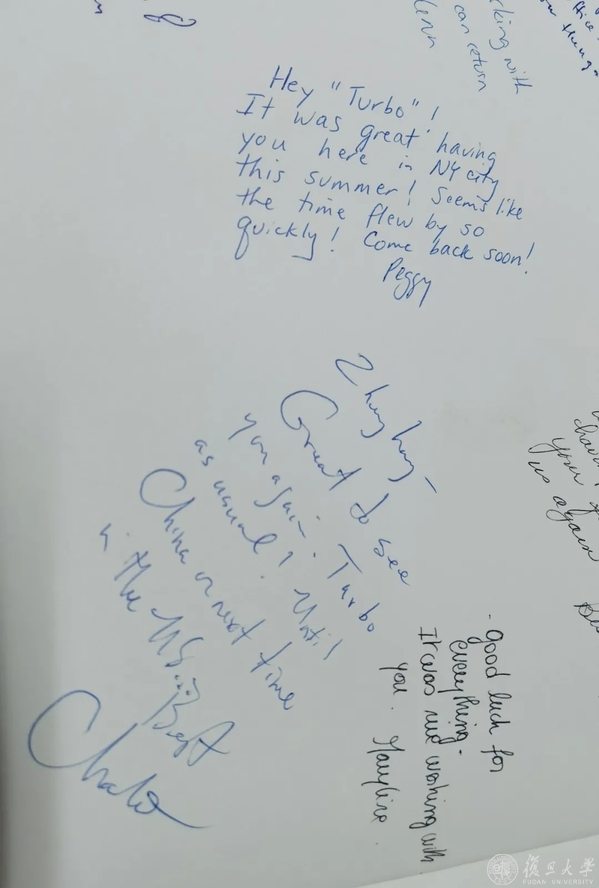 rking with
can return
Hey "Turbo"!
It was great having
you here in NY city
this summer! Seems like
the time flew by so
quickly! Come back soon!
Peggy
Great to see
you again. Turbo
as usual! Until
China or next time
in the US...
Best
your
us again
- good luck for
everything -
It was nice working with
you.
復旦大學
FUDAN UNIVERSITY